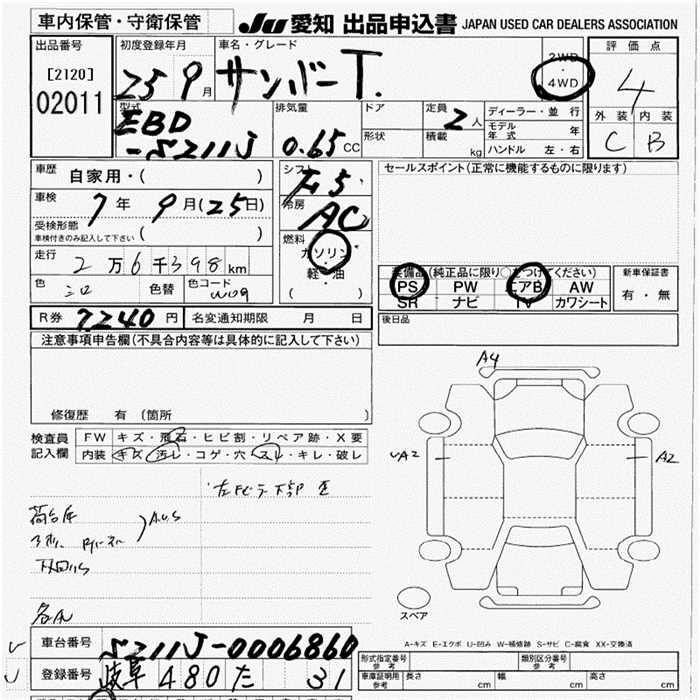 車内保管・守衛保管
JU 愛知 出品申込書 JAPAN USED CAR DEALERS ASSOCIATION
出品番号 初度登録年月 車名・グレード 2WD・4WD 評価点
[2120]
02011
25 9月 サンバーT. 4
外装 内装
C B
型式 排気量 ドア 定員 2人 ディーラー・並行
EBD
-S211J 0.65CC 形状 積載 kg モデル年式 年
ハンドル 左・右
車歴 自家用・( )
シフト F5
セールスポイント(正常に機能するものに限ります)
車検 7年 9月(25日)
冷房 AC
受検形態 ( )
車検付きのみ記入して下さい
燃料 ガソリン・軽・油 ( )
走行 2万6千398km
色 シロ 色替 色コード W09
装備品(純正品に限り○をつけてください)
PS PW エアB AW
SR ナビ TV カワシート
新車保証書
有・無
R券 7240円 名変通知期限 月 日
後日品
注意事項申告欄(不具合内容等は具体的に記入して下さい)
修復歴 有(箇所 )
検査員記入欄
FW キズ・飛石・ヒビ割・リペア跡・X要
内装 キズ・汚レ・コゲ・穴・スレ・キレ・破レ
A4
A2
A2
荷台
A.U.S
スペア
A-キズ E-エクボ U-凹み W-補修跡 S-サビ C-腐食 XX-交換済
車台番号 S211J-0006860
登録番号 岐阜 480 た 31
形式指定番号 参考 類別区分番号 参考
車庫証明用 参考 長さ cm 幅 cm 高さ cm